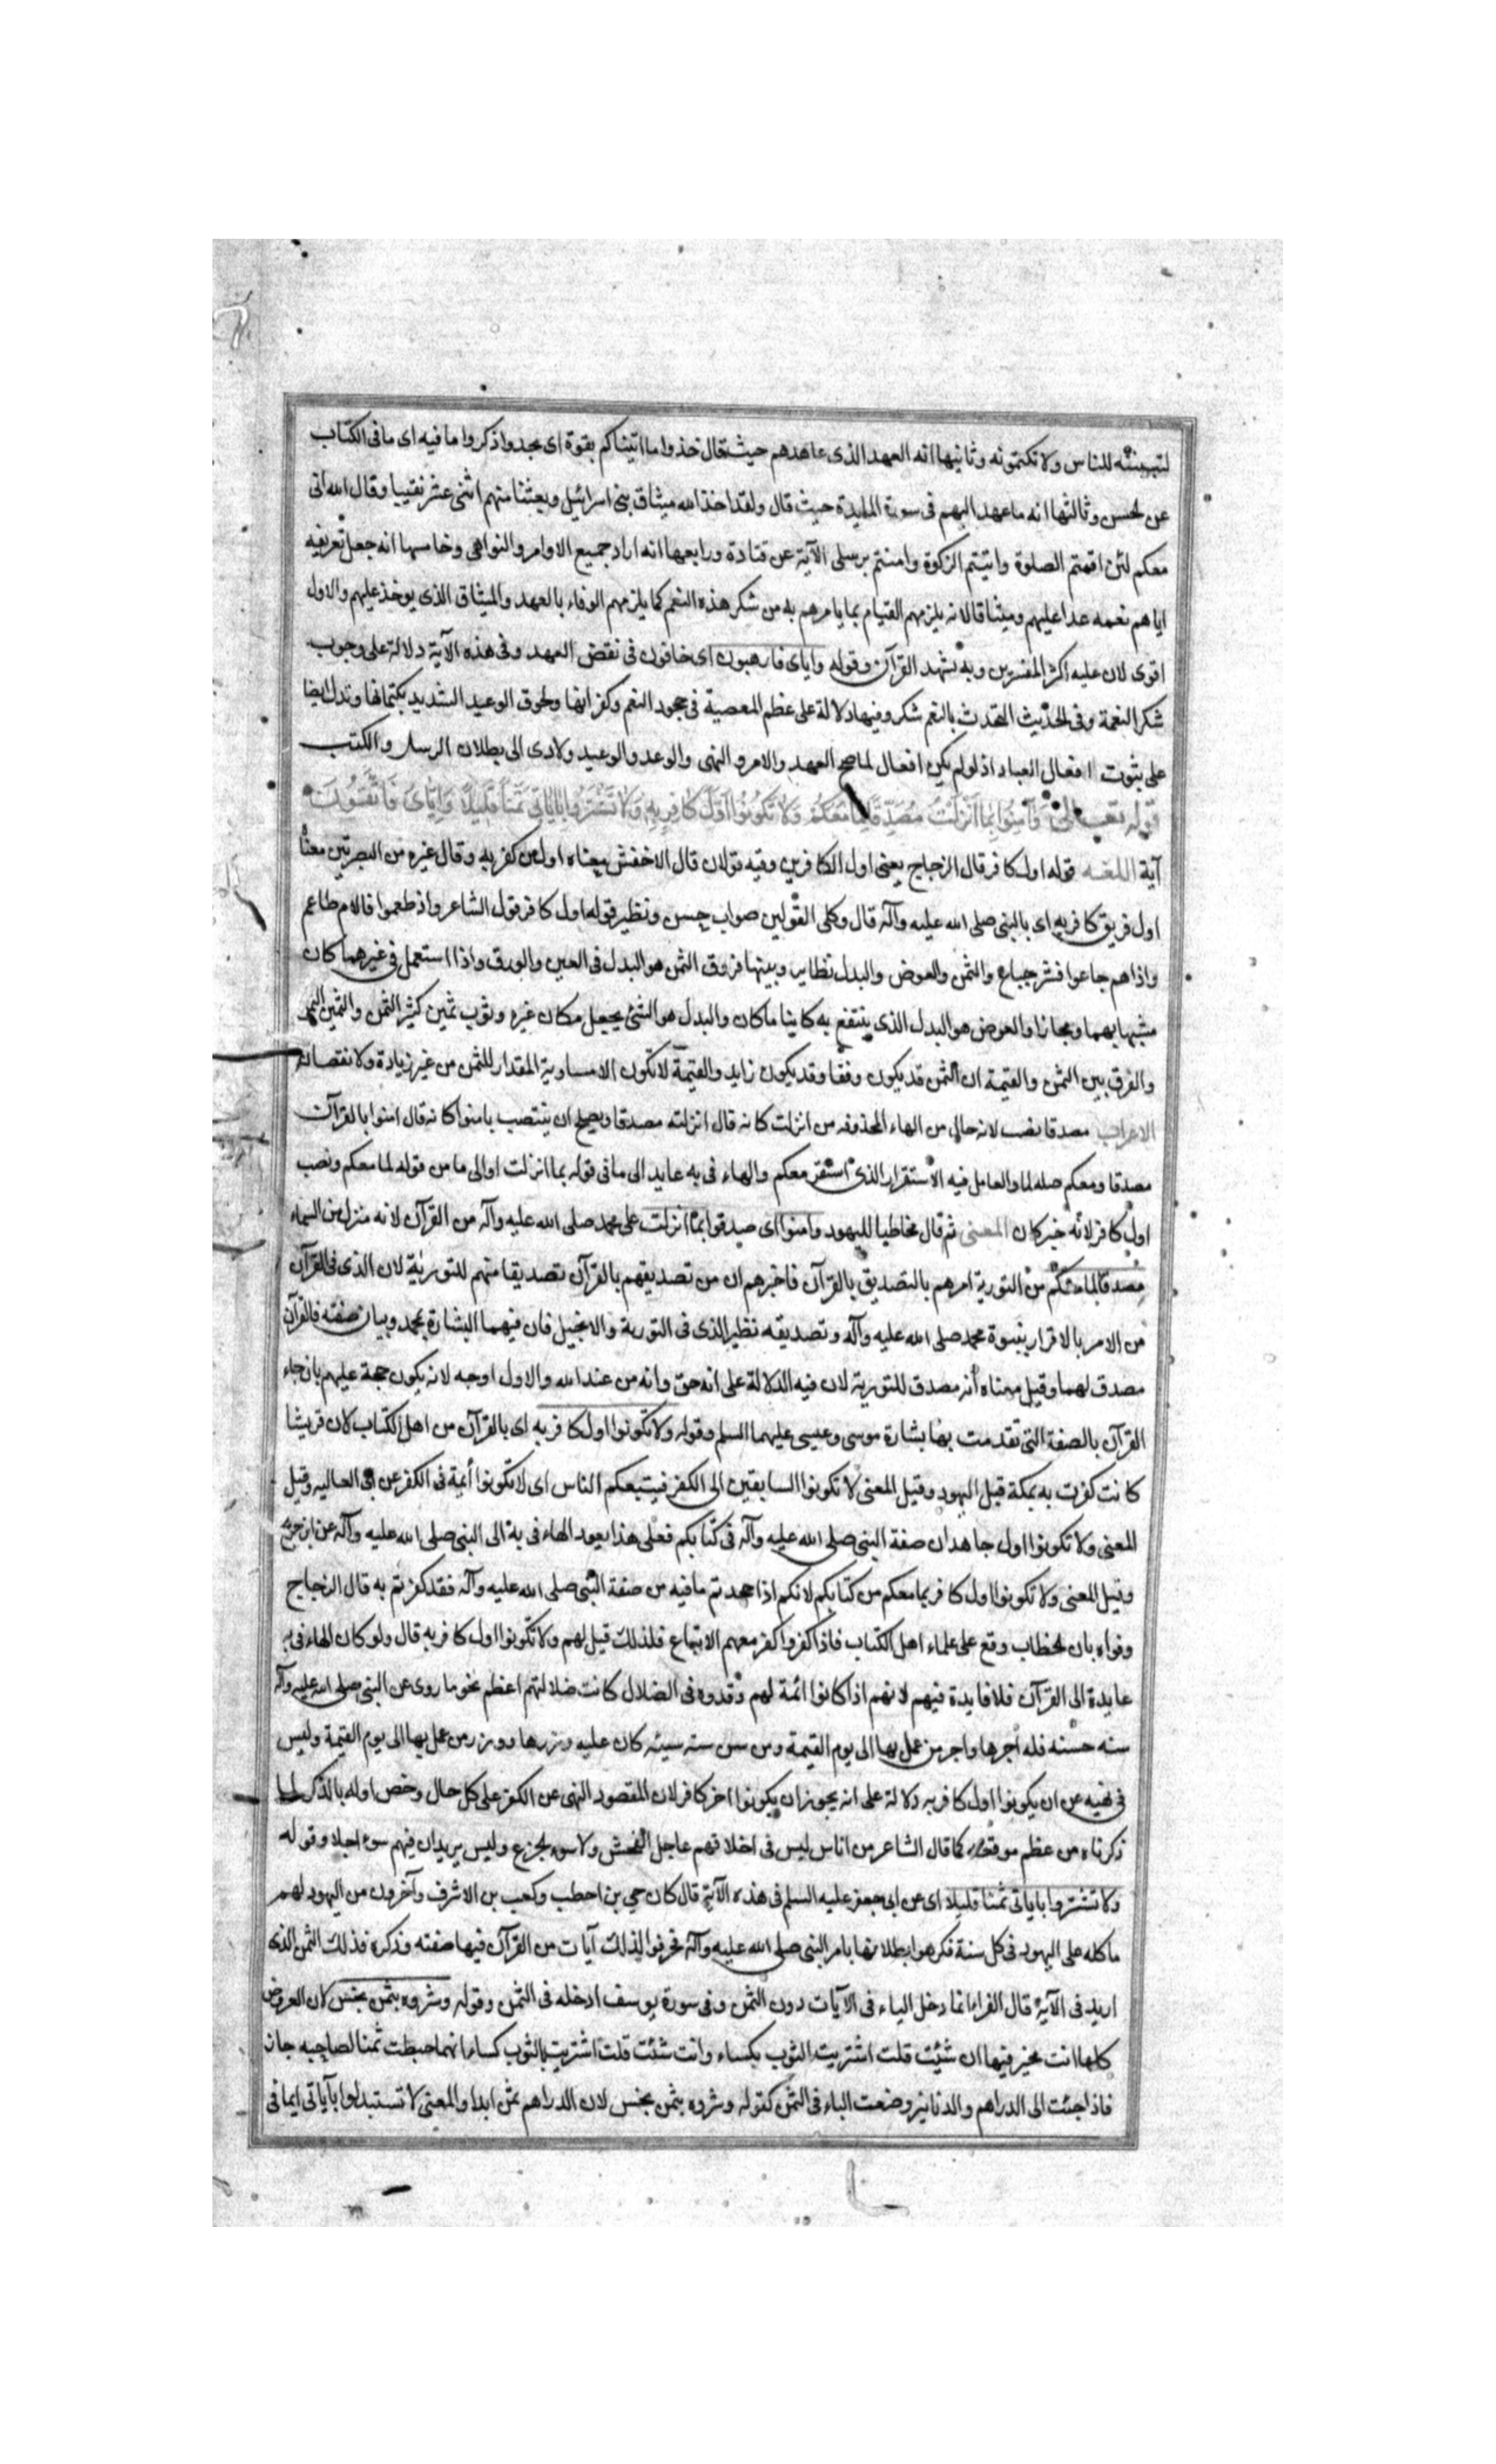 لتبيننه للناس ولا تكتمونه وثانيها انه العهد الذى عاهدهم حيث قال خذوا ما اتيناكم بقوة اى بجد واذكروا ما فيه اى ما فى الكتاب
عن الحسن وثالثها انه ما عهد اليهم فى سورة المايدة حيث قال ولقد اخذ الله ميثاق بنى اسرائيل وبعثنا منهم اثنى عشر نقيبا وقال الله انى
معكم لئن اقمتم الصلوة واتيتم الزكوة وامنتم برسلى الآية عن قتادة ورابعها انه اراد جميع الاوامر والنواهى وخامسها انه جعل تعريفه
اياهم نعمه عهدا عليهم وميثاقا لانه يلزمهم القيام بما يامرهم به من شكر هذه النعم كما يلزمهم الوفاء بالعهد والميثاق الذى يوخذ عليهم والاول
اقوى لان عليه اكثر المفسرين وبه يشهد القرآن وقوله واياى فارهبون اى خافون فى نقض العهد وفى هذه الآية دلالة على وجوب
شكر النعمة وفى الحديث التحدث بالنعم شكر وفيها دلالة على عظم المعصية فى جحود النعم وكفرانها ولحوق الوعيد الشديد بكتمانها وتدل ايضا
على ثبوت افعال العباد اذ لو لم يكن افعال لما صح العهد والامر والنهى والوعد والوعيد ولادى الى بطلان الرسل والكتب
قوله تعالى وَآمِنُوا بِمَا أَنْزَلْتُ مُصَدِّقًا لِمَا مَعَكُمْ وَلَا تَكُونُوا أَوَّلَ كَافِرٍ بِهِ وَلَا تَشْتَرُوا بِآيَاتِى ثَمَنًا قَلِيلًا وَإِيَّاىَ فَاتَّقُونِ
آية اللغة قوله اول كافر قال الزجاج يعنى اول الكافرين وفيه قولان قال الاخفش معناه اول من كفر به وقال غيره من البصريين معناه
اول فريق كافر به اى بالنبى صلى الله عليه وآله قال وكلى القولين صواب حسن ونظير قوله اول كافر قول الشاعر واذ طعموا فالام طاعم
واذا هم جاعوا فشر جياع والثمن والعوض والبدل نظاير وبينها فروق الثمن هو البدل فى العين والورق واذا استعمل فى غيرهما كان
مشبها بهما ومجازا والعوض هو البدل الذى ينتفع به كاينا ما كان والبدل هو الشئ يجعل مكان غيره وثوب ثمين كثير الثمن والثمين
والفرق بين الثمن والقيمة ان الثمن قد يكون وفقا وقد يكون زايد والقيمة لا تكون الا مساوية المقدار للثمن من غير زيادة ولا نقصان
الاعراب مصدقا نصب لانه حال من الهاء المحذوفه من انزلت كانه قال انزلته مصدقا ويصلح ان ينتصب بامنوا كانه قال امنوا بالقرآن
مصدقا ومعكم صله لما والعامل فيه الاستقرار الذى استقر معكم والهاء فى به عايد الى ما فى قوله بما انزلت او الى ما من قوله لما معكم ونصب
اول كافر لانه خبر كان المعنى ثم قال مخاطبا لليهود وامنوا اى صدقوا بما انزلت على محمد صلى الله عليه وآله من القرآن لانه منزل من السماء
مصدقا لما معكم من التورية امرهم بالتصديق بالقرآن فاخبرهم ان من تصديقهم بالقرآن تصديقا منهم للتورية لان الذى فى القرآن
من الامر بالاقرار بنبوة محمد صلى الله عليه وآله وتصديقه نظير الذى فى التورية والانجيل فان فيهما البشارة بمحمد وبيان صفته فالقرآن
مصدق لهما وقيل معناه أنه مصدق للتورية لان فيه الدلالة على انه حق وانه من عند الله والاول اوجه لانه يكون حجة عليهم بان جاء
القرآن بالصفة التى تقدمت بها بشارة موسى وعيسى عليهما السلم وقوله ولا تكونوا اول كافر به اى بالقرآن من اهل الكتاب لان قريشا
كانت كفرت به بمكة قبل اليهود وقيل المعنى لا تكونوا السابقين الى الكفر فيتبعكم الناس اى لا تكونوا أئمة فى الكفر عن ابى العاليه وقيل
المعنى ولا تكونوا اول جاحد ان صفة النبى صلى الله عليه وآله فى كتابكم فعلى هذا يعود الهاء فى به الى النبى صلى الله عليه وآله عن ابن جريج
وقيل المعنى ولا تكونوا اول كافر بما معكم من كتابكم لانكم اذا جحدتم ما فيه من صفة النبى صلى الله عليه وآله فقد كفرتم به قال الزجاج
وقواه بان الخطاب وقع على علماء اهل الكتاب فاذا كفروا كفر معهم الاتباع فلذلك قيل لهم ولا تكونوا اول كافر به قال ولو كان الهاء فى به
عايدة الى القرآن فلا فايدة فيهم لانهم اذا كانوا ائمة لهم وقدوه فى الضلال كانت ضلالتهم اعظم نحو ما روى عن النبى صلى الله عليه وآله
سنه حسنه فله أجرها واجر من عمل بها الى يوم القيمة ومن سن سنه سيئه كان عليه وزرها ووزر من عمل بها الى يوم القيمة وليس
فى نهيه عن ان يكونوا اول كافر به دلالة على انه يجوز ان يكونوا اخر كافر لان المقصود النهى عن الكفر على كل حال وخص اوله بالذكر لما
ذكرناه من عظم موقعه كما قال الشاعر من اناس ليس فى اخلاقهم عاجل الفحش ولا سوء الجزع وليس يريد ان فيهم سوء اجلا وقوله
ولا تشتروا باياتى ثمنا قليلا اى عن ابى جعفر عليه السلم فى هذه الآية قال كان حي بن احطب وكعب بن الاشرف وآخرون من اليهود لهم
ماكله على اليهود فى كل سنة فكرهوا بطلانها بامر النبى صلى الله عليه وآله فحرفوا لذلك آيات من القرآن فيها صفته وذكره فذلك الثمن الذى
اريد فى الآية قال الفراء انما دخل الباء فى الآيات دون الثمن وفى سورة يوسف ادخله فى الثمن وقوله وشروه بثمن بخس لان العروض
كلها انت مخير فيها ان شئت قلت اشتريت الثوب بكساء وانت شئت قلت اشتريت بالثوب كساء انهما جعلت ثمنا لصاحبه جاز
فاذا جئت الى الدراهم والدنانير وضعت الباء فى الثمن كقوله وشروه بثمن بخس لان الدراهم ثمن ابدا والمعنى لا تستبدلوا بآياتى ايما فى